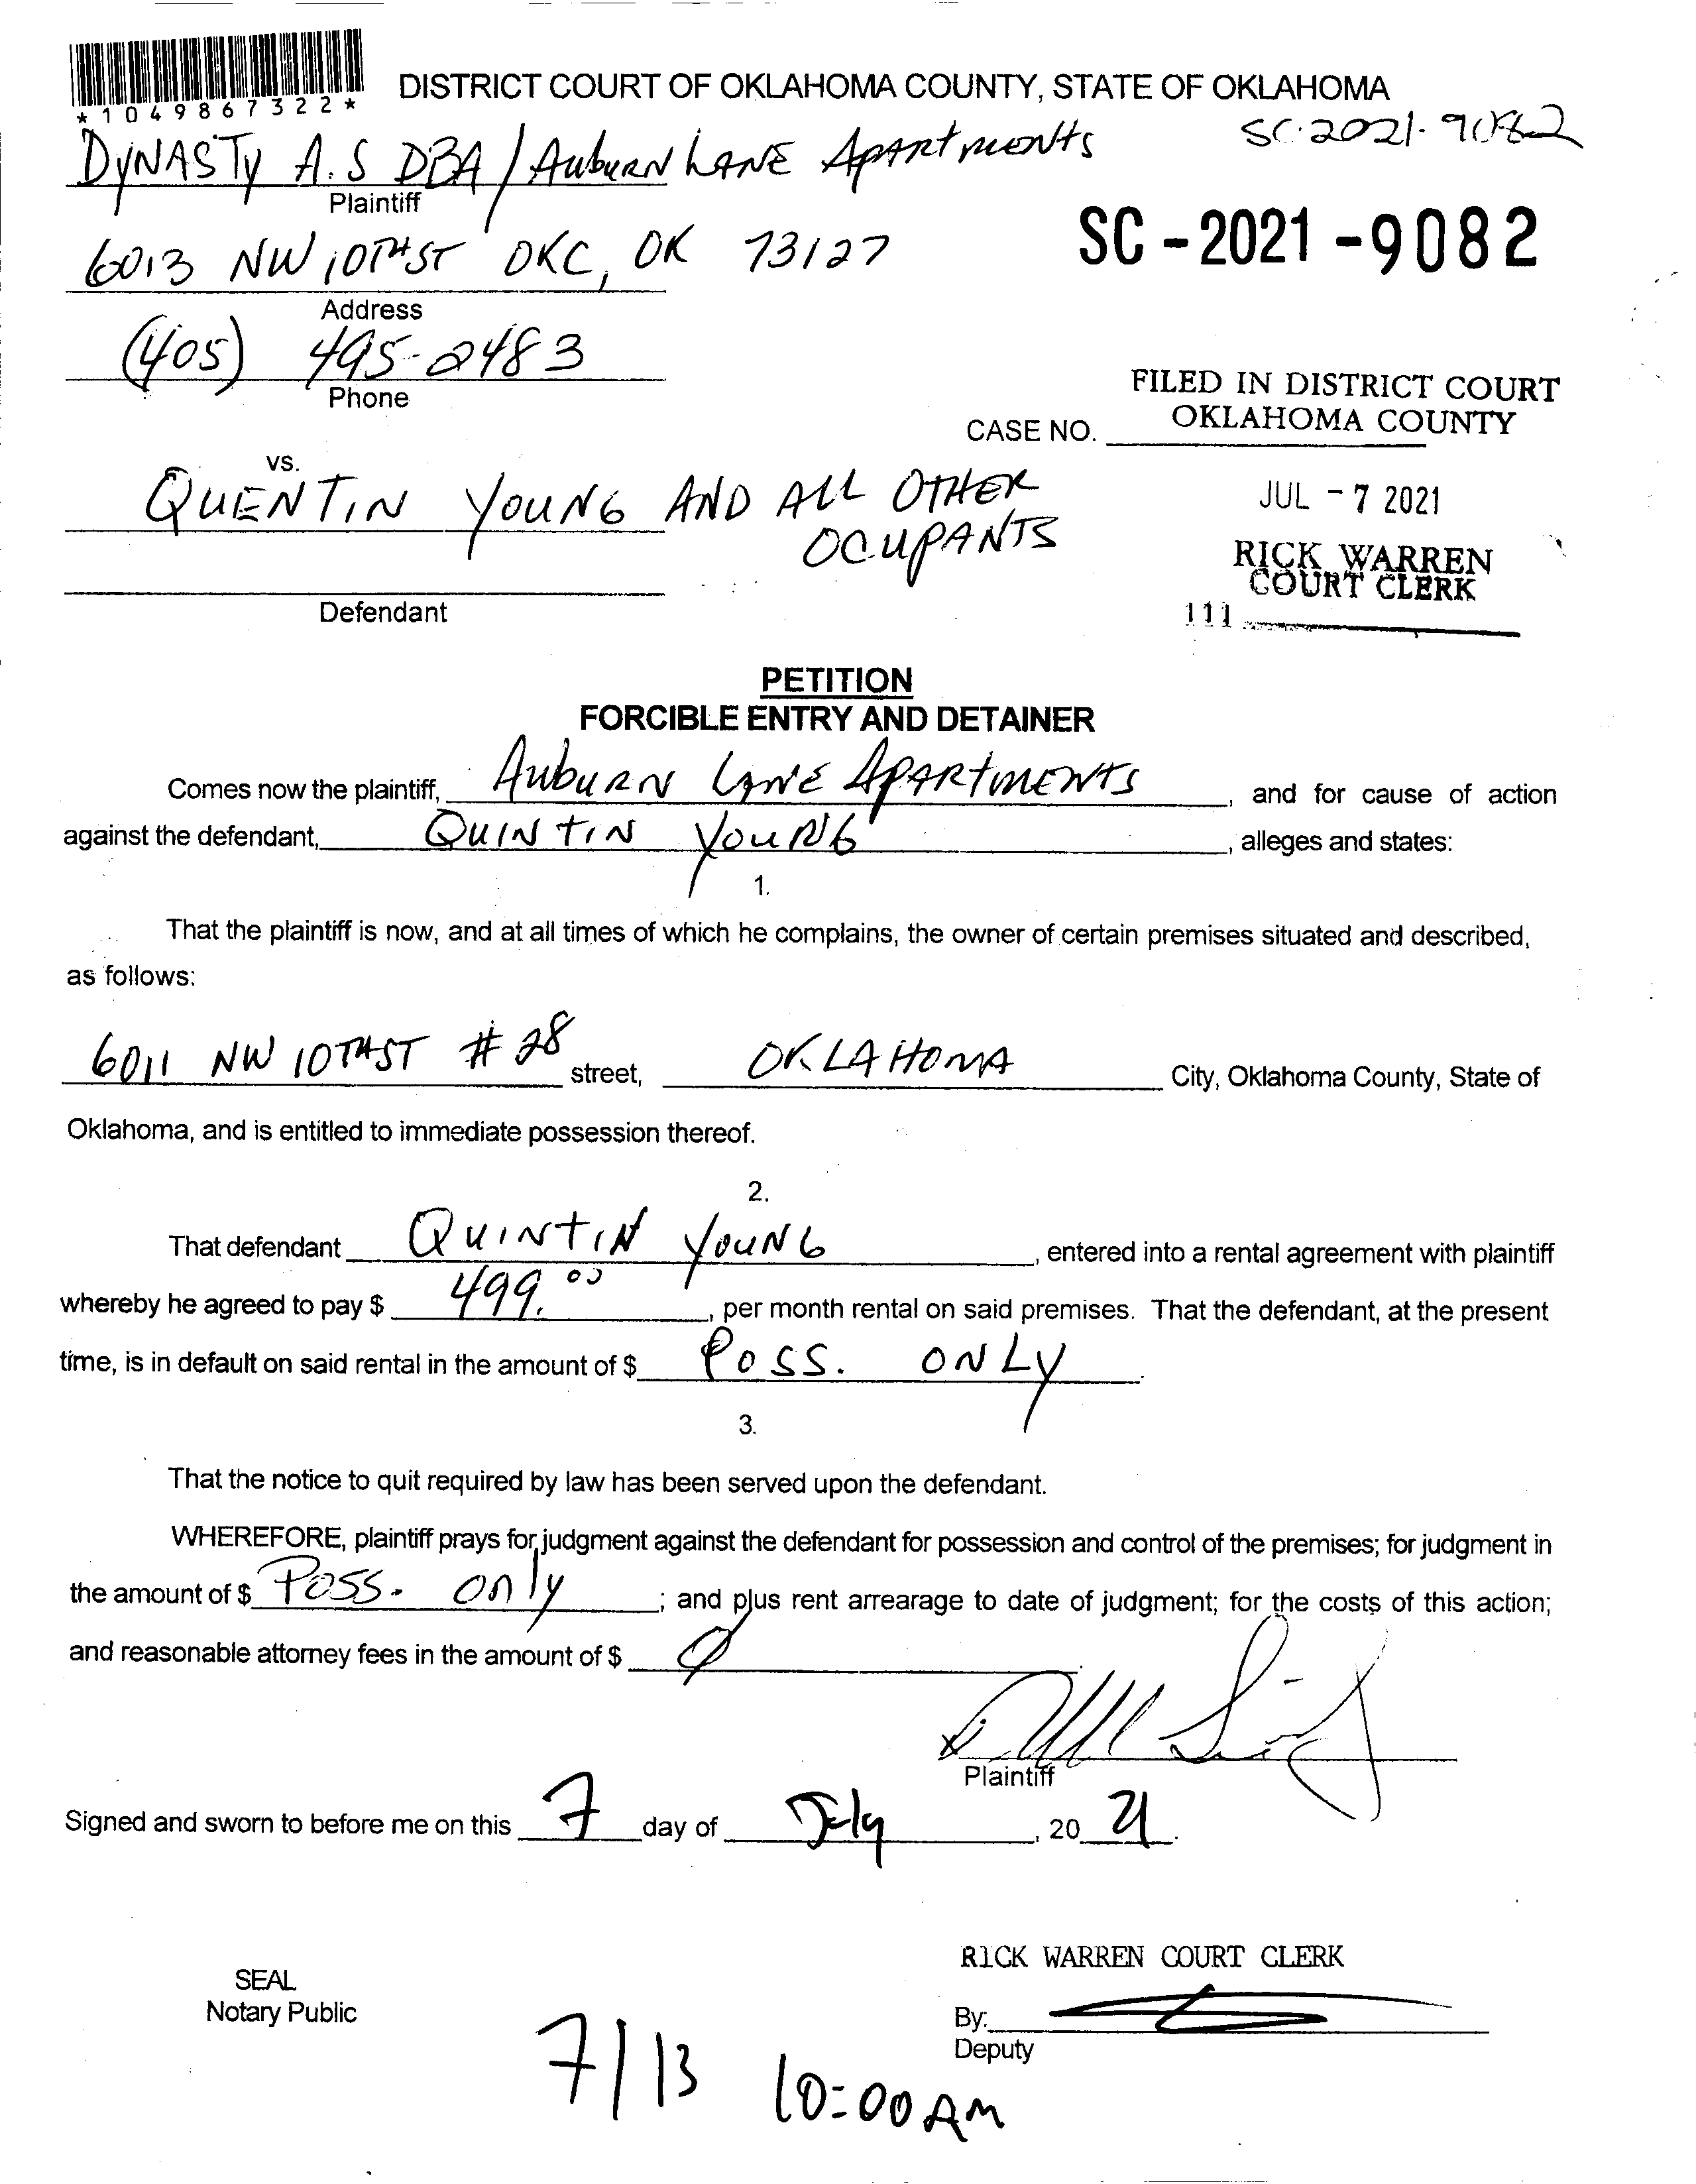 *1049867322*
DISTRICT COURT OF OKLAHOMA COUNTY, STATE OF OKLAHOMA
SC-2021-9082
DYNASTY A.S DBA / AUBURN LANE APARTMENTS
Plaintiff
SC-2021-9082
6013 NW 10TH ST OKC, OK 73127
Address
(405) 495-2483
Phone
FILED IN DISTRICT COURT
OKLAHOMA COUNTY
CASE NO.
vs.
QUENTIN YOUNG AND ALL OTHER
OCUPANTS
JUL -7 2021
RICK WARREN
COURT CLERK
Defendant
111
PETITION
FORCIBLE ENTRY AND DETAINER
Comes now the plaintiff, AUBURN LANE APARTMENTS, and for cause of action
against the defendant, QUINTIN YOUNG, alleges and states:
1.
That the plaintiff is now, and at all times of which he complains, the owner of certain premises situated and described,
as follows:
6011 NW 10TH ST # 28 street, OKLAHOMA City, Oklahoma County, State of
Oklahoma, and is entitled to immediate possession thereof.
2.
That defendant QUINTIN YOUNG, entered into a rental agreement with plaintiff
whereby he agreed to pay $ 499.00, per month rental on said premises. That the defendant, at the present
time, is in default on said rental in the amount of $ POSS. ONLY.
3.
That the notice to quit required by law has been served upon the defendant.
WHEREFORE, plaintiff prays for judgment against the defendant for possession and control of the premises; for judgment in
the amount of $ Poss. only; and plus rent arrearage to date of judgment; for the costs of this action;
and reasonable attorney fees in the amount of $ Ø.
Plaintiff
Signed and sworn to before me on this 7 day of July, 20 21.
RICK WARREN COURT CLERK
SEAL
Notary Public
By:
Deputy
7/13 10:00 AM